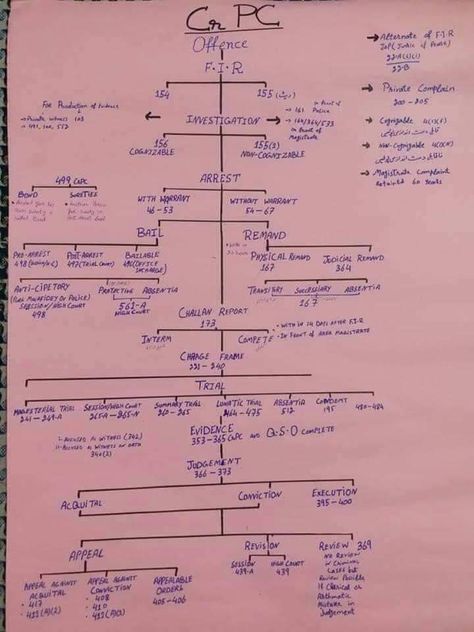 Cr PC
Offence
F.I.R
154
155
Alternate of F.I.R
JoP (Justice of Peace)
22-A(6)(i)
22-B
For Production of Evidence
Private witness 103
INVESTIGATION
in front of Police
161
164/364/533
in front of Magistrate
Private Complain
200-205
156
COGNIZABLE
155(2)
NON-COGNIZABLE
Cognizable 4(1)(f)
Non-Cognizable 4(1)(n)
Magistrate Complaint
ARREST
499 CrPC
BOND
SURETIES
WITH WARRANT
46-53
WITHOUT WARRANT
54-67
BAIL
REMAND
PRE-ARREST
498
POST-ARREST
497 (Trial Court)
BAILABLE
496 (OFFICE INCHARGE)
PHYSICAL REMAND
167
JUDICIAL REMAND
364
ANTI-CIPETORY
SESSION/HIGH COURT
498
PROTECTIVE
ABSENTIA
561-A
HIGH COURT
TRANSITORY
SUCCESSARY
ABSENTIA
167
CHALLAN REPORT
173
INTERM
COMPETE
WITH IN 14 DAYS AFTER F.I.R
IN FRONT OF AREA MAGISTRATE
CHARGE FRAME
221-240
TRIAL
MAGISTERIAL TRIAL
241-249-A
SESSION/HIGH COURT
265-A-265-N
SUMMARY TRIAL
260-265
LUNATIC TRIAL
464-475
ABSENTIA
512
CONTEMPT
195
480-484
EVIDENCE
353-365 CrPC AND Q.S.O COMPLETE
ACCUSED AS WITNESS (342)
ACCUSED AS WITNESS ON OATH
340(2)
JUDGEMENT
366-373
ACQUITAL
CONVICTION
EXECUTION
395-400
APPEAL
REVISION
REVIEW 369
NO REVIEW
IN CRIMINAL
CASES BUT
REVIEW POSSIBLE
IF CLERICAL OR
ARITHMATIC
MISTAKE IN
JUDGEMENT
SESSION
439-A
HIGH COURT
439
APPEAL AGAINST
ACQUITAL
417
411(A)(2)
APPEAL AGAINST
CONVICTION
408
410
APPEALABLE
ORDERS
405-406